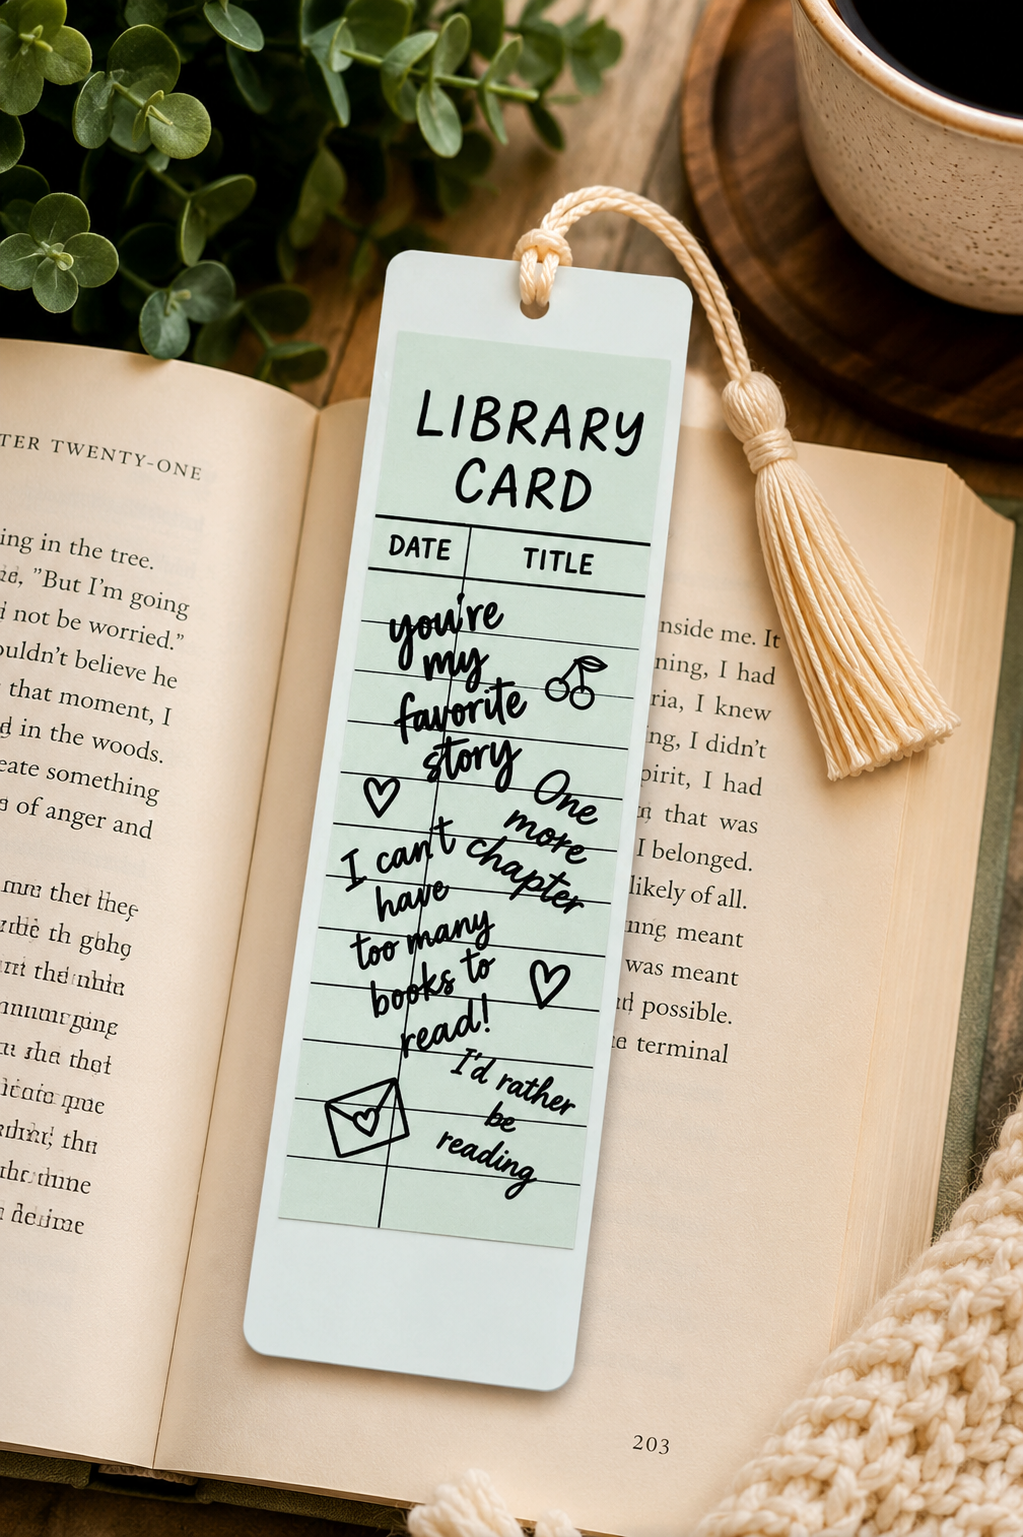 TER TWENTY-ONE
ing in the tree.
"But I'm going
not be worried."
ouldn't believe he
that moment, I
d in the woods.
eate something
s of anger and
LIBRARY
CARD
DATE TITLE
you're
my
favorite
story
One
more
chapter
I can't
have
too many
books to
read!
I'd rather
be
reading
nside me. It
ning, I had
ria, I knew
ng, I didn't
pirit, I had
that was
I belonged.
likely of all.
meant
was meant
possible.
terminal
203